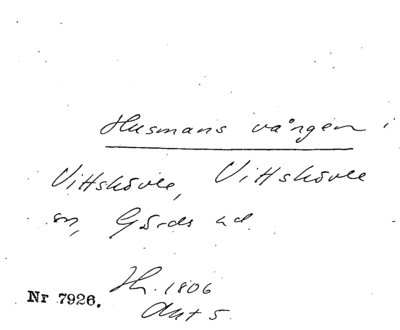 Husmans vången i
Vittskövle, Vittskövle
sn, Gärds hd.
Nr 7926. Hh. 1806
Akt 5